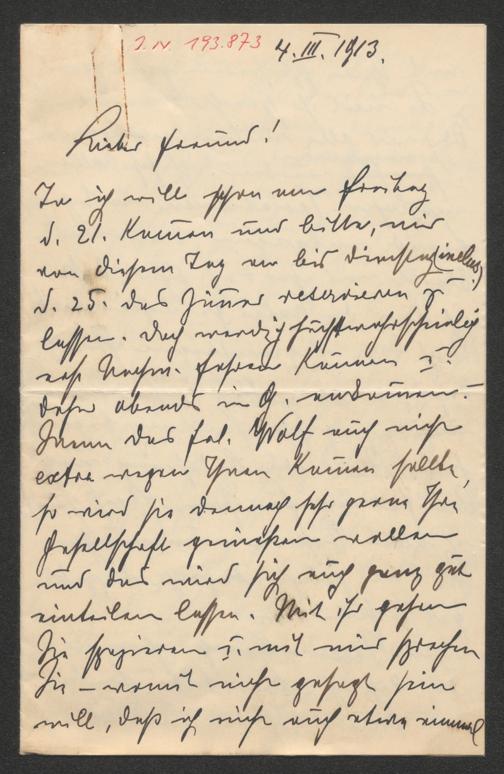 J.N. 193.873
4. III. 1913.
Lieber Freund!
Ja ich will schon am Freitag
d. 21. kommen und bitte, mir
von diesem Tag an bis Dienstag (inclus.)
d. 25. das Zimmer reservieren zu
lassen. Doch werde ich höchstwahrscheinlich
erst Nachm. fahren können u.
daher abends in G. ankommen. –
Wenn das Frl. Wolf auch nicht
extra wegen Ihnen kommen sollte,
so wird sie dennoch sehr gerne Ihre
Gesellschaft genießen wollen
und das wird sich auch ganz gut
einteilen lassen. Mit ihr gehen
Sie spazieren u. mit mir sprechen
Sie – womit nicht gesagt sein
will, daß ich nicht auch etwa einmal